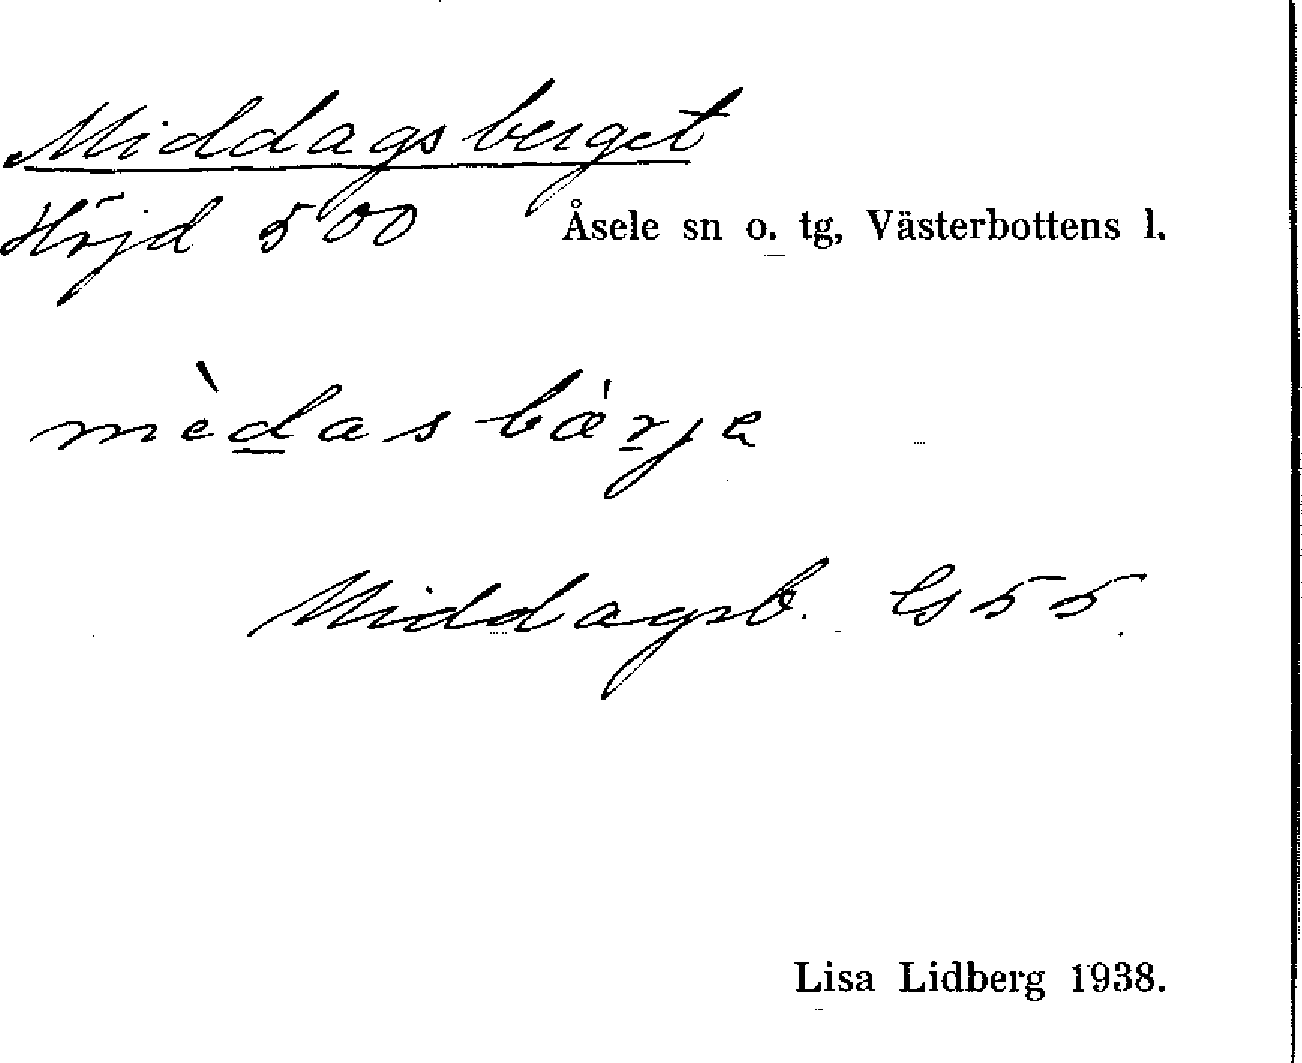 Middagsberget
Höjd 500 Åsele sn o. tg, Västerbottens l.
mèdasbæ'rje
Middagsb. Gs 55.
Lisa Lidberg 1938.